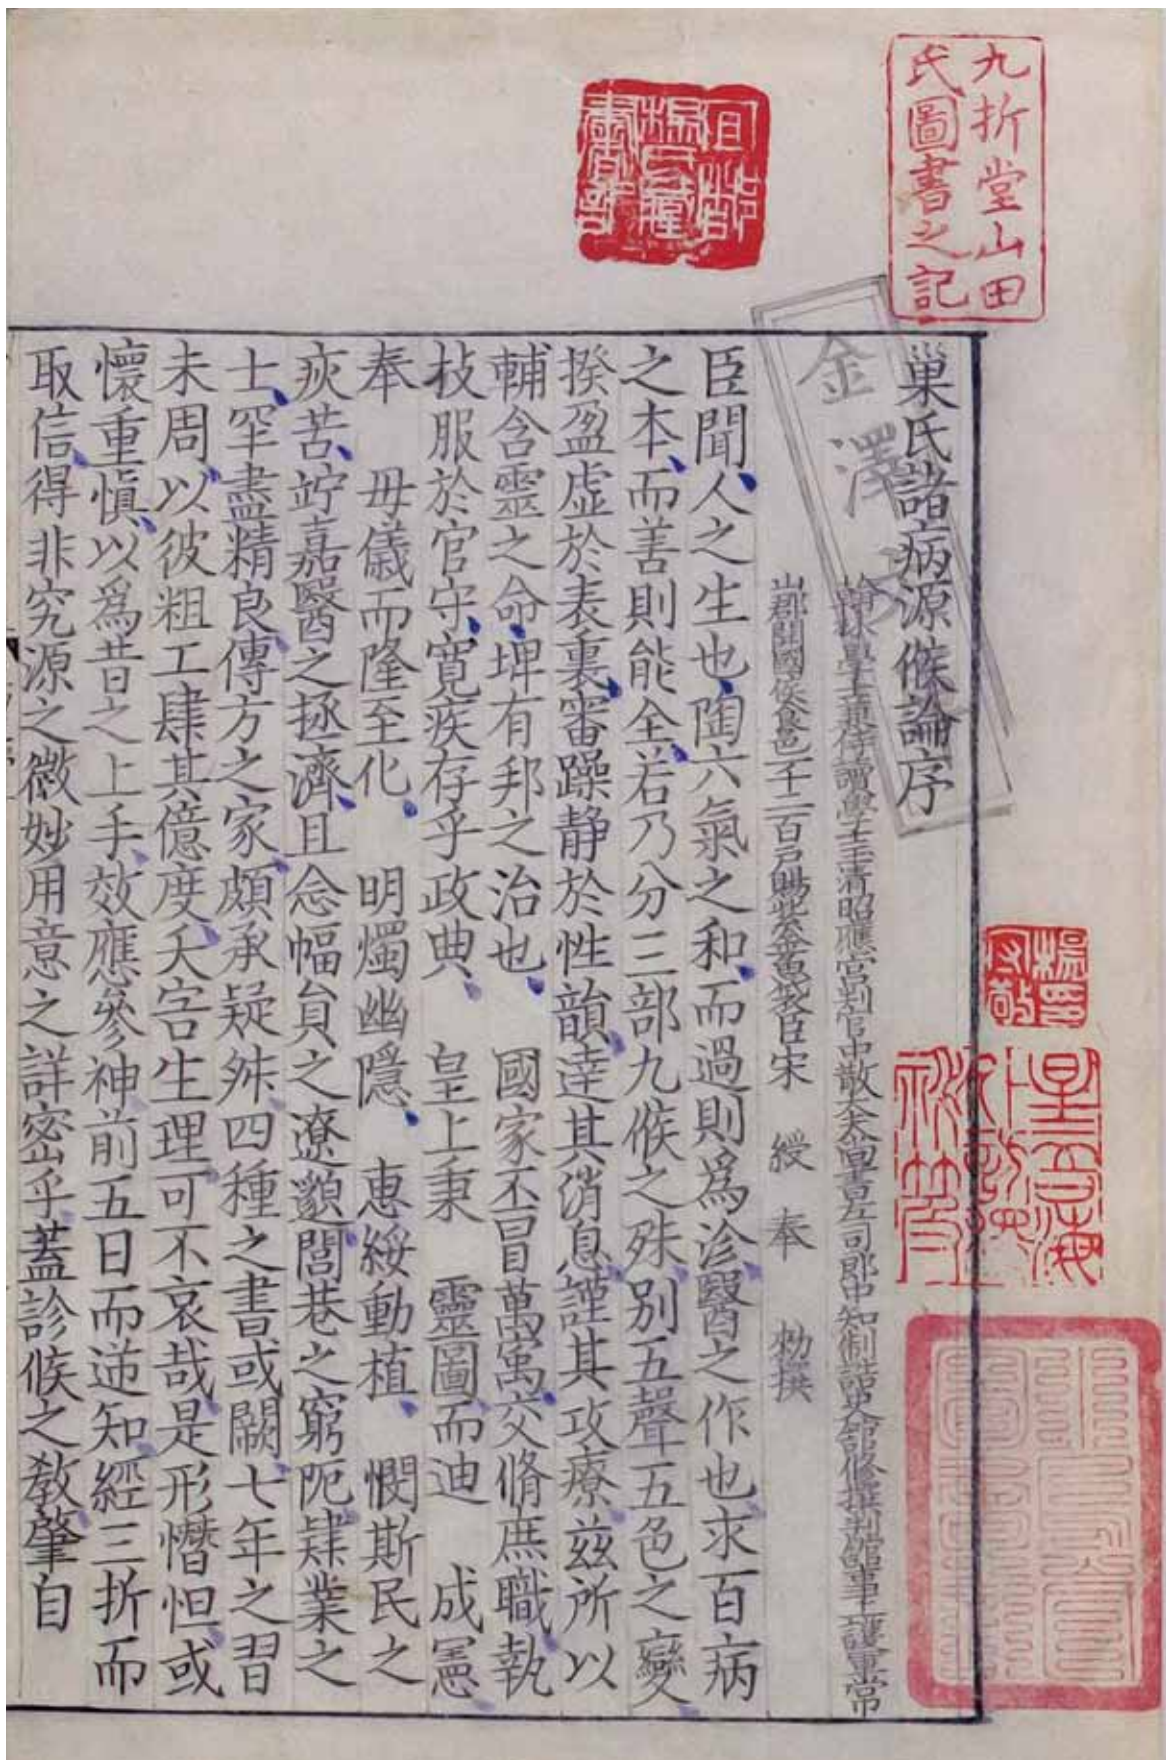 九折堂山田
氏圖書之記
宜都
楊氏藏
書記
金澤
巢氏諸病源候論序
翰林學士兼侍讀學士玉清昭應宮判官中散大夫尚書左司郎中知制誥史館修撰判館事上護軍常
山郡開國侯食邑一千二百戶賜紫金魚袋臣宋 綬 奉 勑撰
臣聞、人之生也、陶六氣之和、而過則爲沴、醫之作也、求百病
之本、而善則能全、若乃分三部九候之殊、別五聲五色之變、
揆盈虛於表裏、審躁静於性韻、達其消息、謹其攻療、茲所以
輔含靈之命、埤有邦之治也、 國家丕冒萬寓、交脩庶職、執
技服於官守、寛疾存乎政典、 皇上秉 靈圖、而迪 成憲、
奉 毋儀而隆至化、 明燭幽隱、 惠綏動植、 憫斯民之
疢苦、竚嘉醫之拯濟、且念幅員之遼邈、閭巷之窮阨、肄業之
士、罕盡精良、傳方之家、頗承疑舛、四種之書、或闕、七年之習
未周、以彼粗工肆其億度、夭害生理、可不哀哉、是形憯怛、或
懷重慎、以爲昔之上手、效應參神、前五日而逆知、經三折而
取信、得非究源之微妙、用意之詳密乎、蓋診候之教、肇自
楊印
守敬
星吾海
外訪得
秘笈